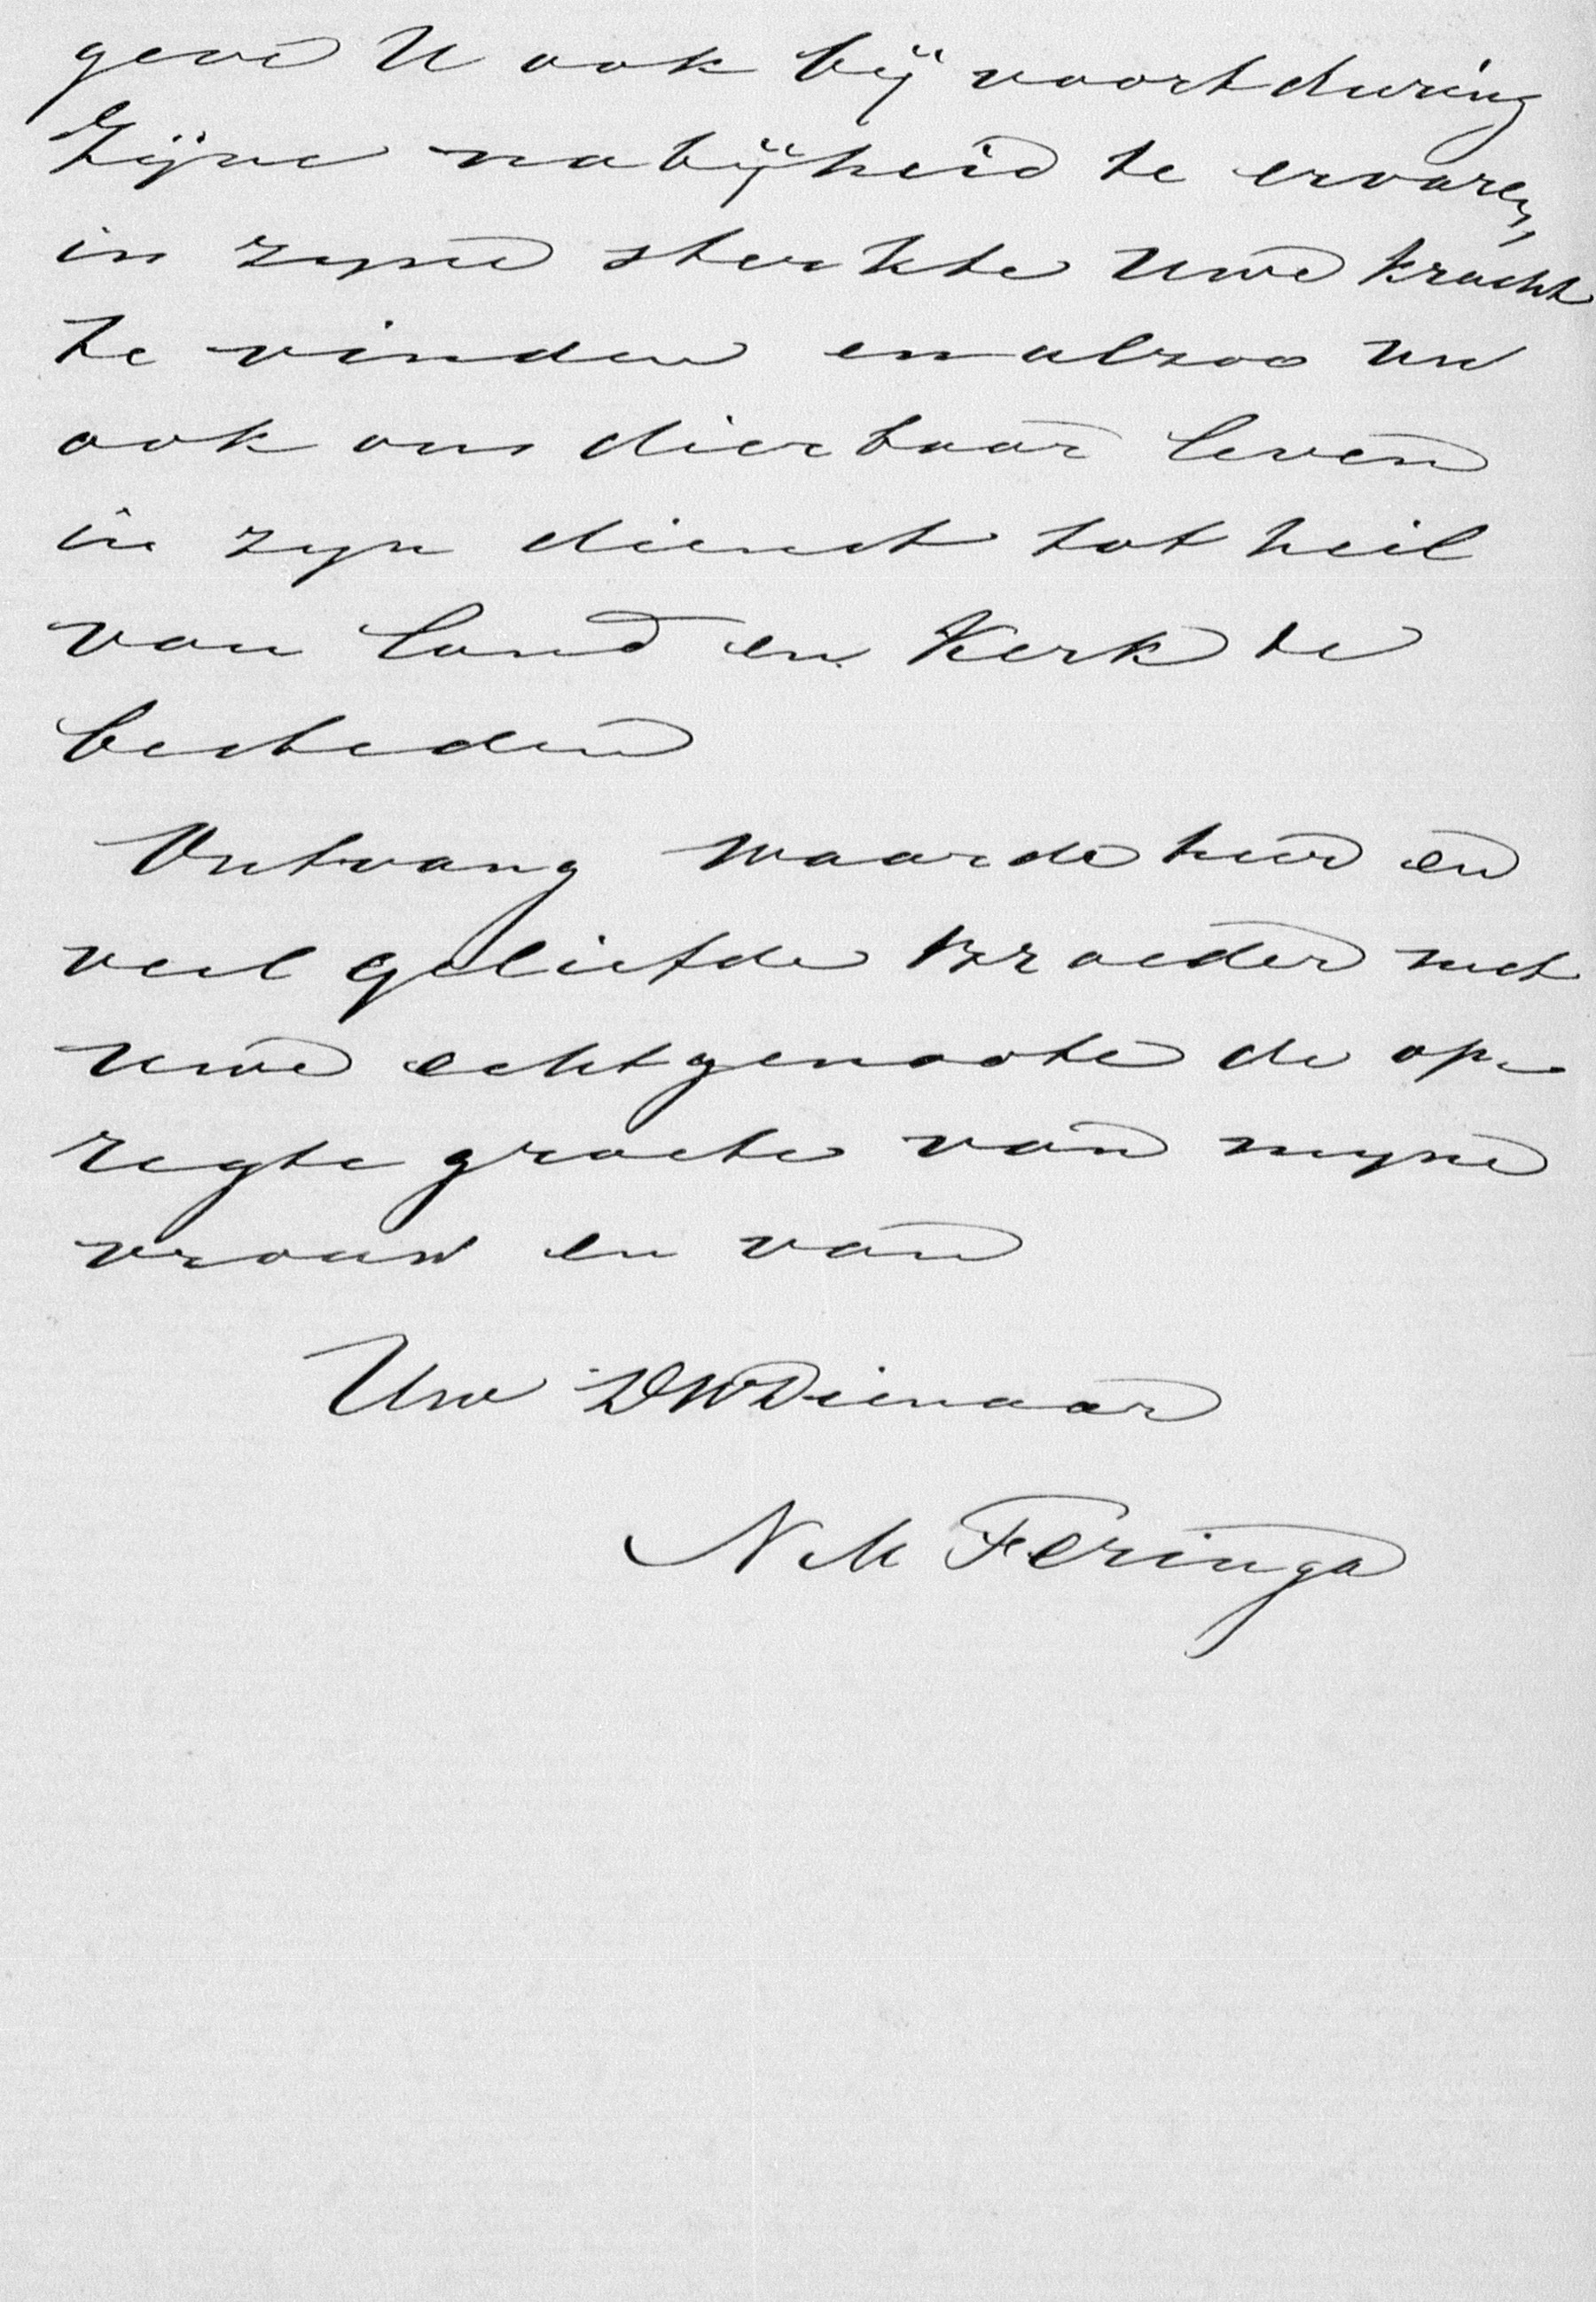 geve U ook bij voortduring
Zijne nabijheid te ervaren,
in zyne sterkte uwe kracht
te vinden en alzoo uw
ook ons dierbaar leven
in zyn dienst tot heil
van land en Kerk te
besteden
Ontvang waarde heer en
veel geliefde Broeder met
uwe echtgenoote de op-
regte groete van myne
vrouw en van
Uw DWDienaar
N M Feringa